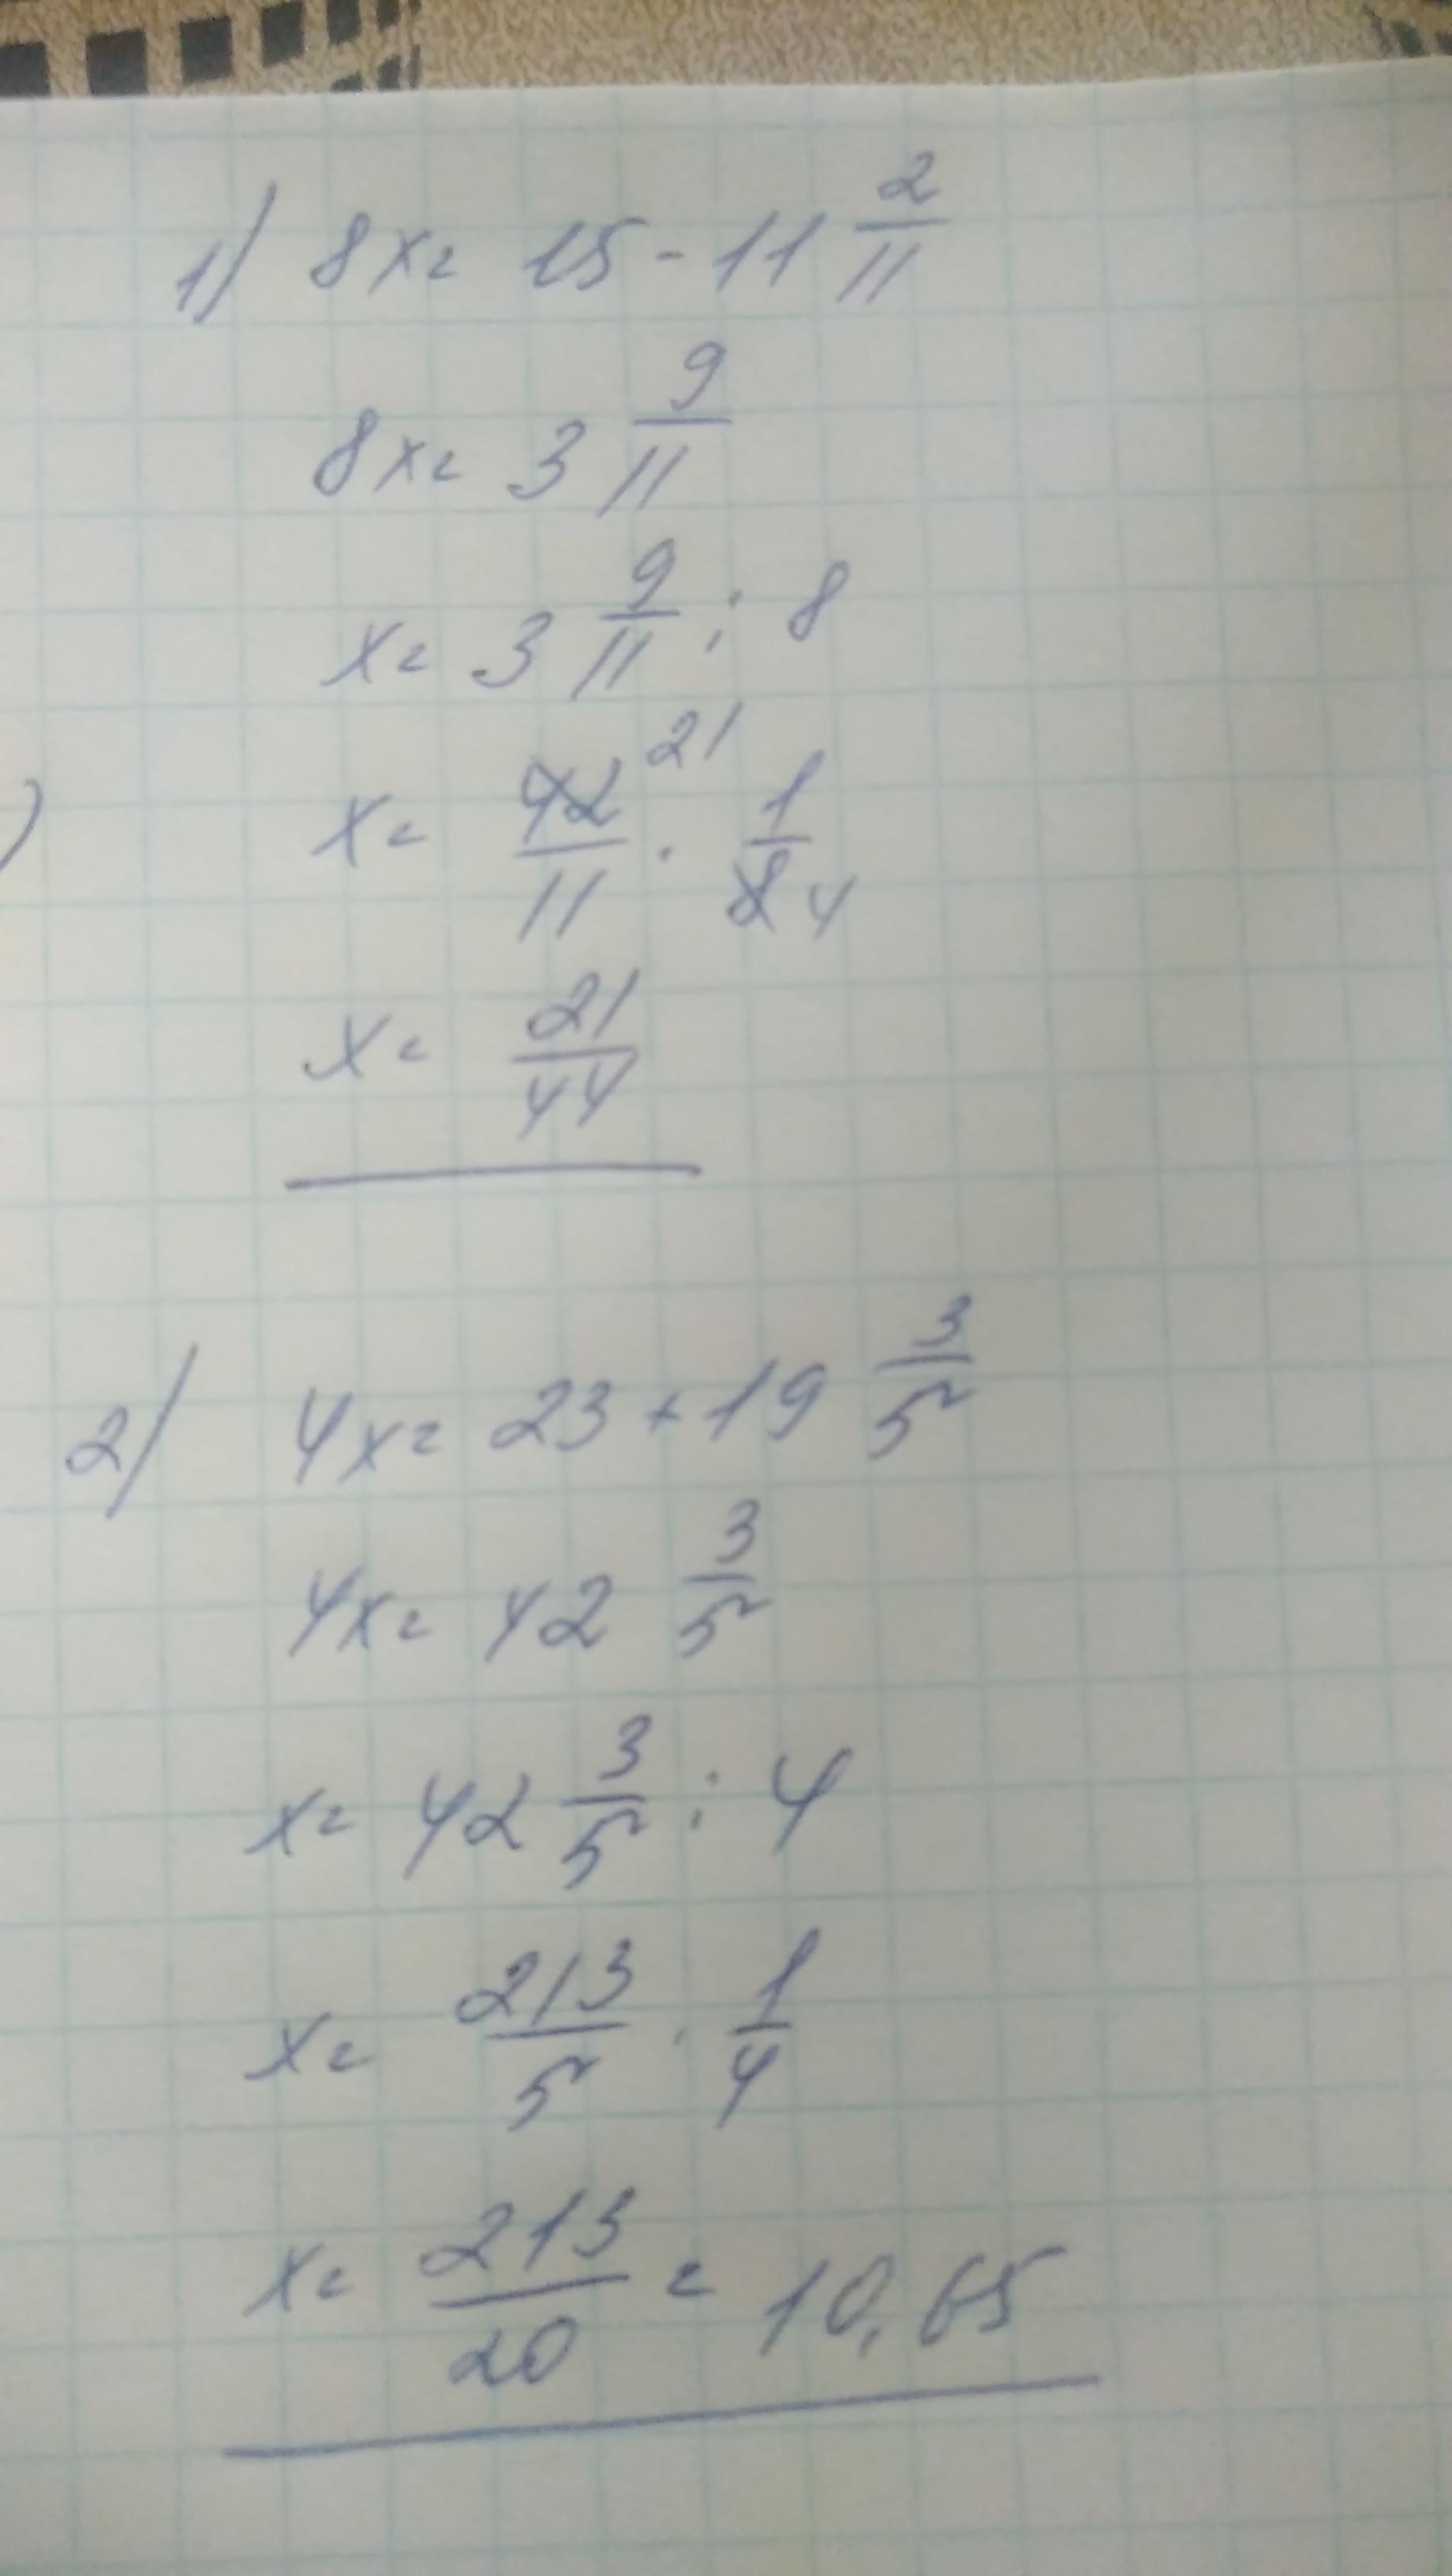 1) 8x = 15 - 11 2/11
8x = 3 9/11
x = 3 9/11 : 8
x = 42/11 21 · 1/8 4
x = 21/44
2) 4x = 23 + 19 3/5
4x = 42 3/5
x = 42 3/5 : 4
x = 213/5 · 1/4
x = 213/20 = 10,65